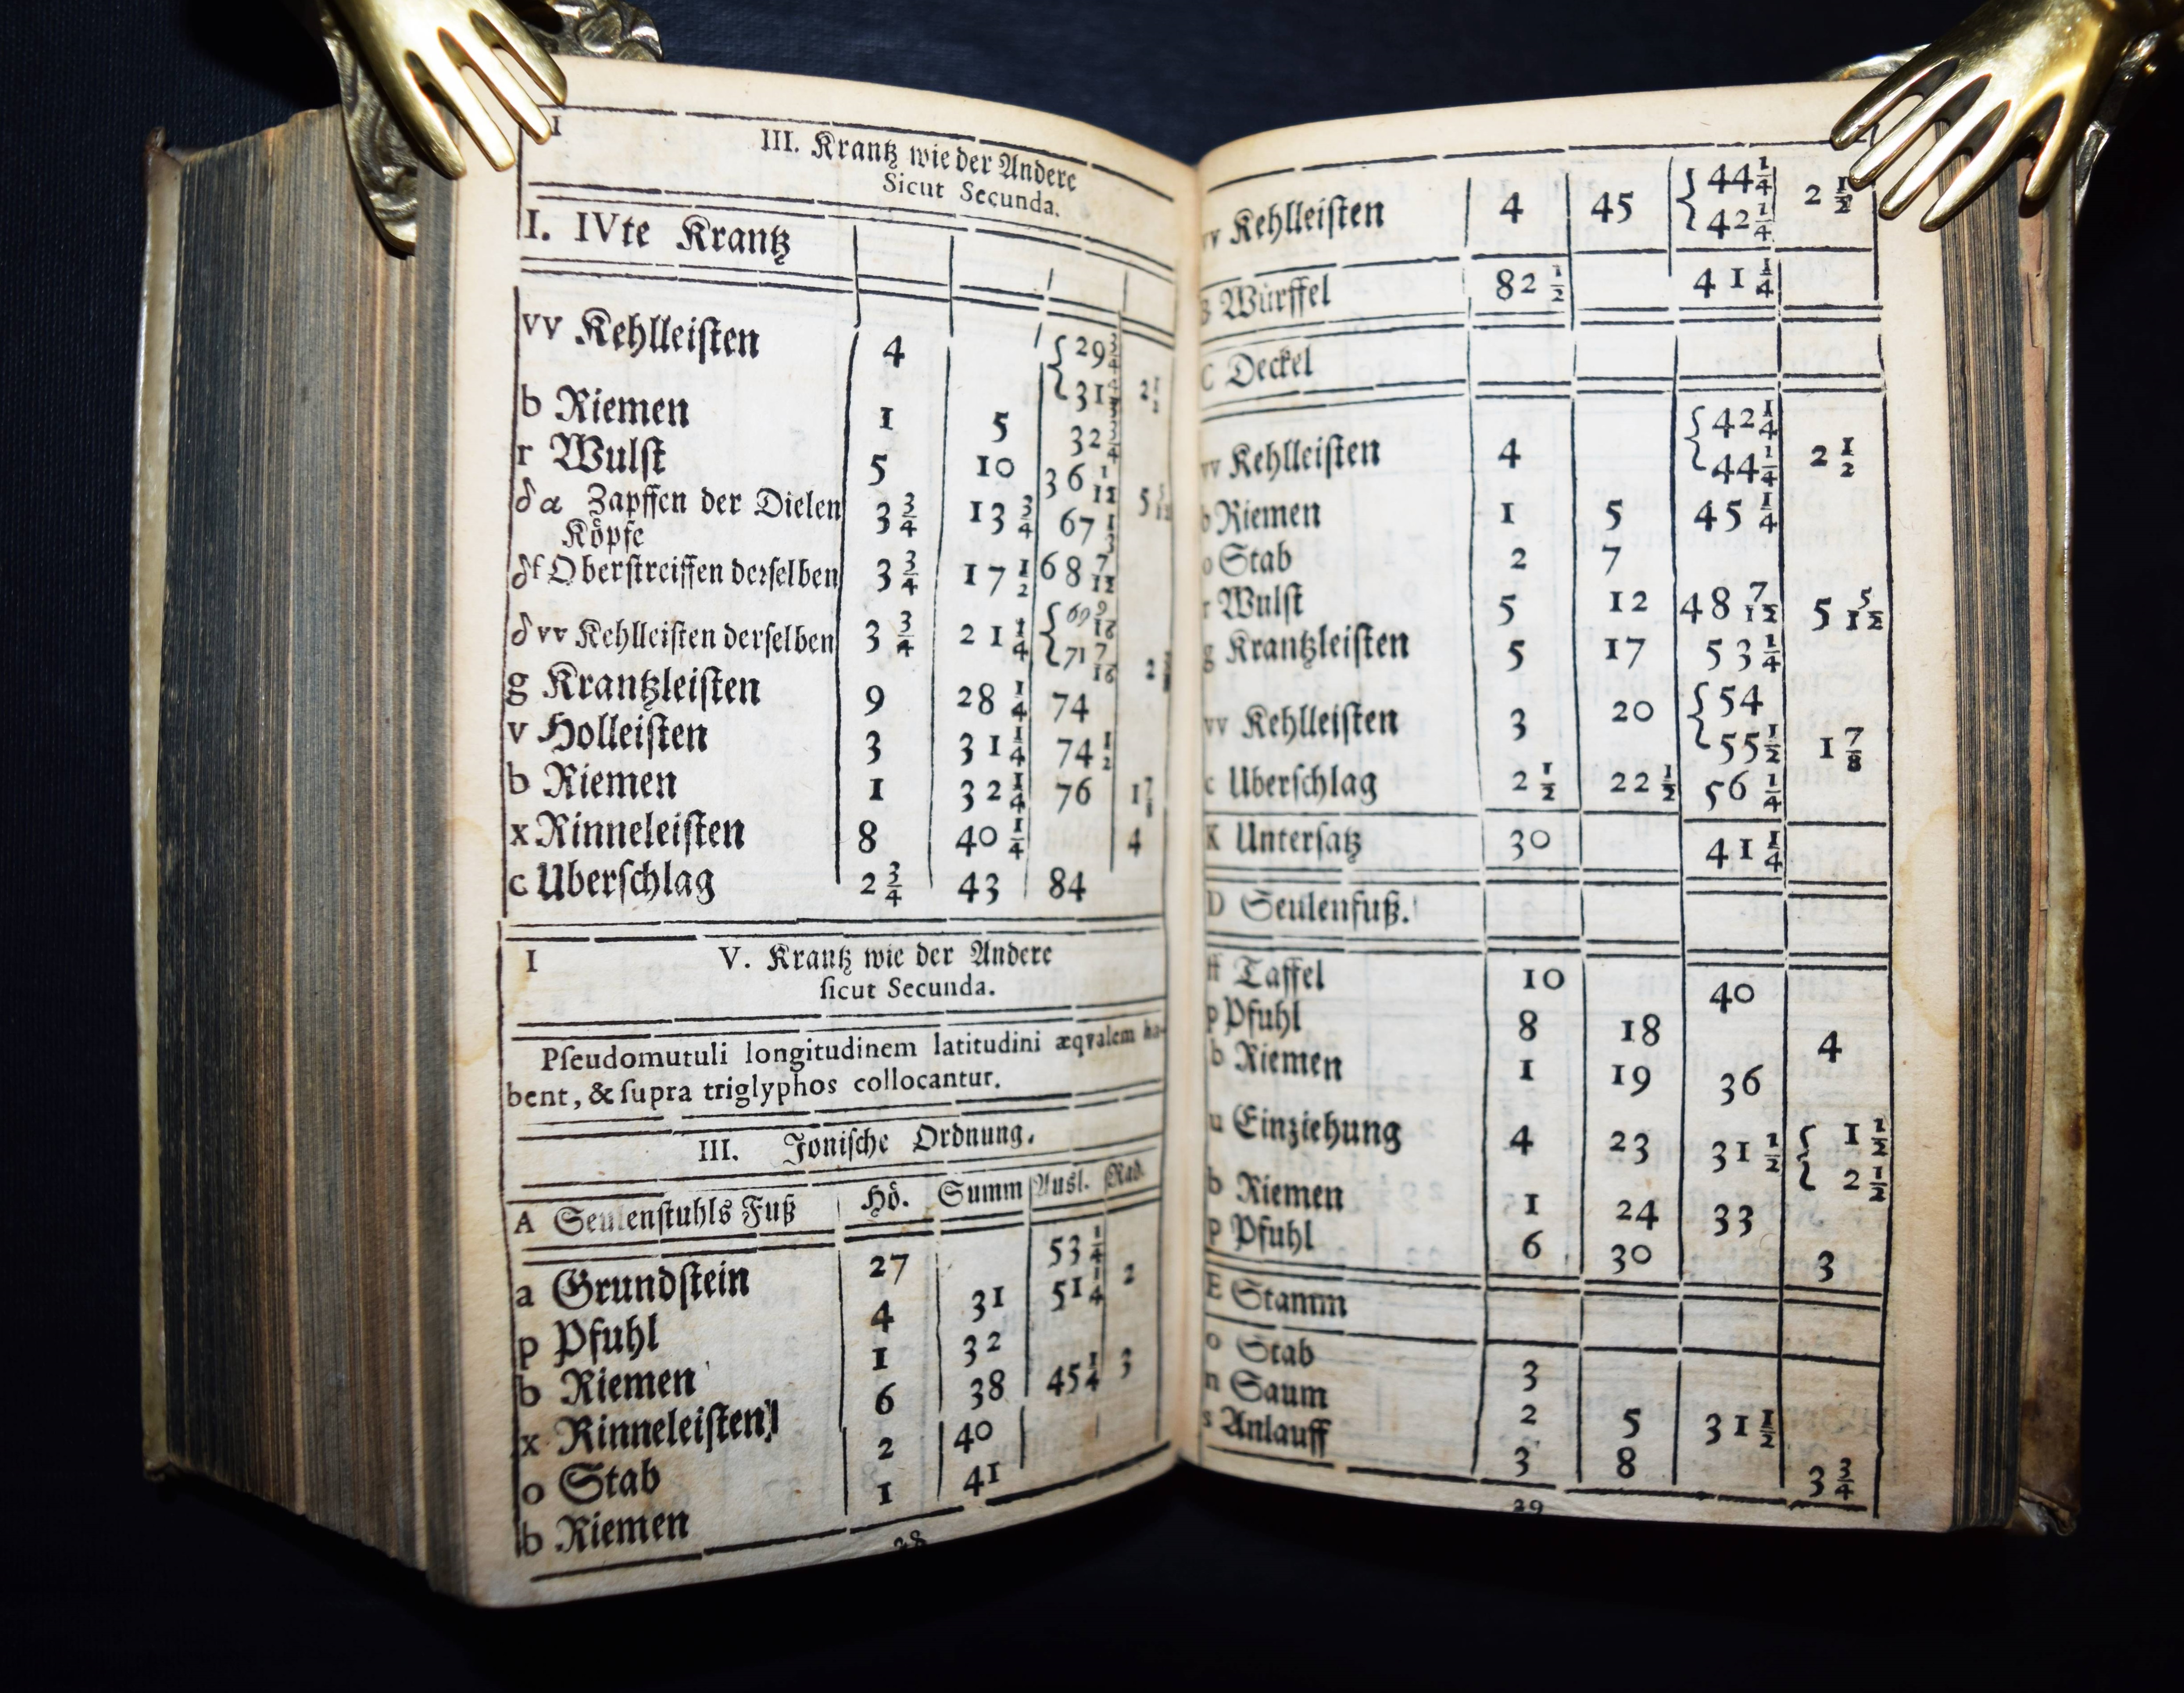 I
III. Krantz wie der Andere
Sicut Secunda.
I. IVte Krantz
vv Kehlleiſten 4 {29¾
{31¾ 2½
b Riemen 1 5 32¾
r Wulſt 5 10 36 1/12
δα Zapffen der Dielen 3¾ 13¾ 67
Köpfe
Oberſtreiffen derſelben 3¾ 17½ 68 7/12
δ vv Kehlleiſten derſelben 3¾ 21¼ {69 9/16
{71 7/16
g Krantzleiſten 9 28¼ 74
v Holleiſten 3 31¼ 74½
b Riemen 1 32¼ 76
x Rinneleiſten 8 40¼ 4
c Uberſchlag 2¾ 43 84
I V. Krantz wie der Andere
ſicut Secunda.
Pſeudomutuli longitudinem latitudini æqvalem ha-
bent, & ſupra triglyphos collocantur.
III. Joniſche Ordnung.
A Seulenſtuhls Fuß Hö. Summ Ausl. Rad.
a Grundſtein 27 53¼
p Pfuhl 4 31 51¼ 2
b Riemen 1 32
x Rinneleiſten 6 38 45¼ 3
o Stab 2 40
b Riemen 1 41
28
vv Kehlleiſten 4 45 {44¼
{42¼ 2½
Würffel 82½ 41¼
C Deckel
vv Kehlleiſten 4 {42¼
{44¼ 2½
b Riemen 1 5 45¼
o Stab 2 7
r Wulſt 5 12 48 7/12 5 5/12
g Krantzleiſten 5 17 53¼
vv Kehlleiſten 3 20 {54
{55½ 1⅞
c Uberſchlag 2½ 22½ 56¼
K Unterſatz 30 41¼
D Seulenfuß.
Taffel 10 40
p Pfuhl 8 18 4
b Riemen 1 19 36
u Einziehung 4 23 31½ {1½
{2½
b Riemen 1 24 33
p Pfuhl 6 30 3
E Stamm
o Stab 3
n Saum 2 5 31½
s Anlauff 3 8 3¾
29